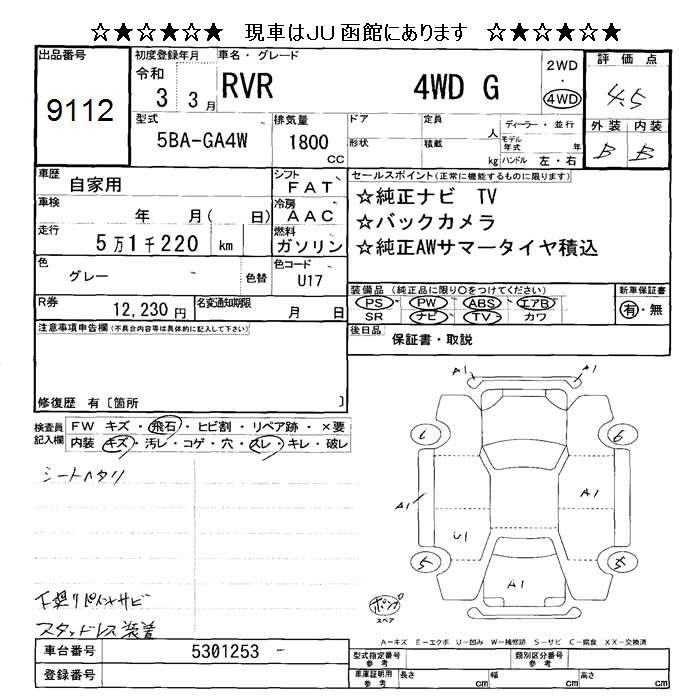 ☆★☆★☆★ 現車はJU函館にあります ☆★☆★☆★
出品番号
9112
初度登録年月
令和
3 3月
車名・グレード
RVR 4WD G
2WD
・
4WD
評価点
4.5
外装 内装
B B
型式
5BA-GA4W
排気量
1800
CC
ドア 定員 人
形状 積載 kg
ディーラー・並行
モデル年式 年
ハンドル 左・右
車歴
自家用
シフト
FAT
車検
年 月( 日)
冷房
AAC
走行
5万1千220 km
燃料
ガソリン
色
グレー
色替
色コード
U17
セールスポイント(正常に機能するものに限ります)
☆純正ナビ TV
☆バックカメラ
☆純正AWサマータイヤ積込
R券
12,230円
名変通知期限
月 日
装備品(純正品に限り○をつけてください)
PS・PW・ABS・エアB
SR ナビ・TV・カワ
新車保証書
有・無
後日品
保証書・取説
注意事項申告欄(不具合内容等は具体的に記入して下さい)
修復歴 有〔箇所 〕
検査員記入欄
FW キズ・飛石・ヒビ割・リペア跡・×要
内装 キズ・汚レ・コゲ・穴・スレ・キレ・破レ
シートヘタリ
下廻りペイントサビ
スタッドレス装着
A1 A1
6 6
A1 A1
U1
5 5
A1
ポンプ
スペア
A-キズ E-エクボ U-凹み W-補修跡 S-サビ C-腐食 XX-交換済
車台番号
5301253
登録番号
型式指定番号
参考
類別区分番号
参考
車庫証明用
参考
長さ cm 幅 cm 高さ cm